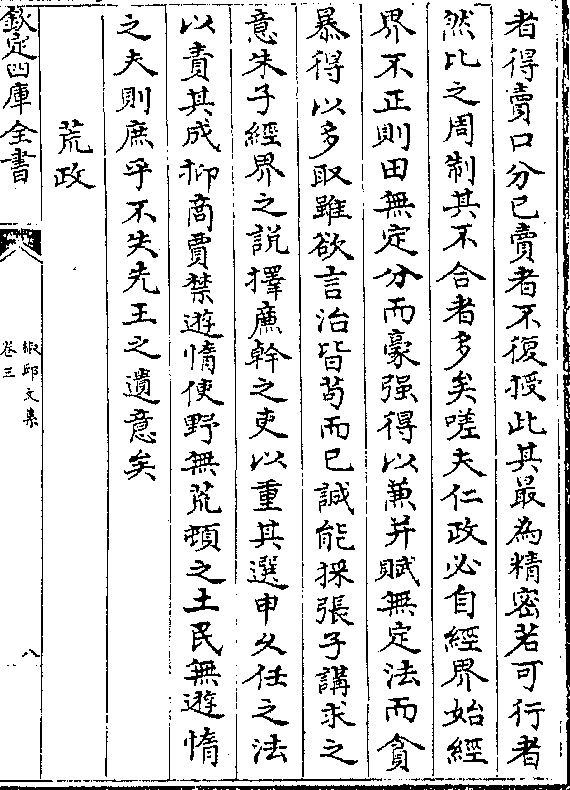 者得賣口分已賣者不復授此其最為精密若可行者
然比之周制其不合者多矣嗟夫仁政必自經界始經
界不正則田無定分而豪强得以兼并賦無定法而貪
暴得以多取雖欲言治皆苟而已誠能採張子講求之
意朱子經界之說擇廉幹之吏以重其選申久任之法
以責其成抑商賈禁遊惰使野無荒頓之土民無遊惰
之夫則庶乎不失先王之遺意矣
荒政
欽定四庫全書
椒邱文集
卷三
八